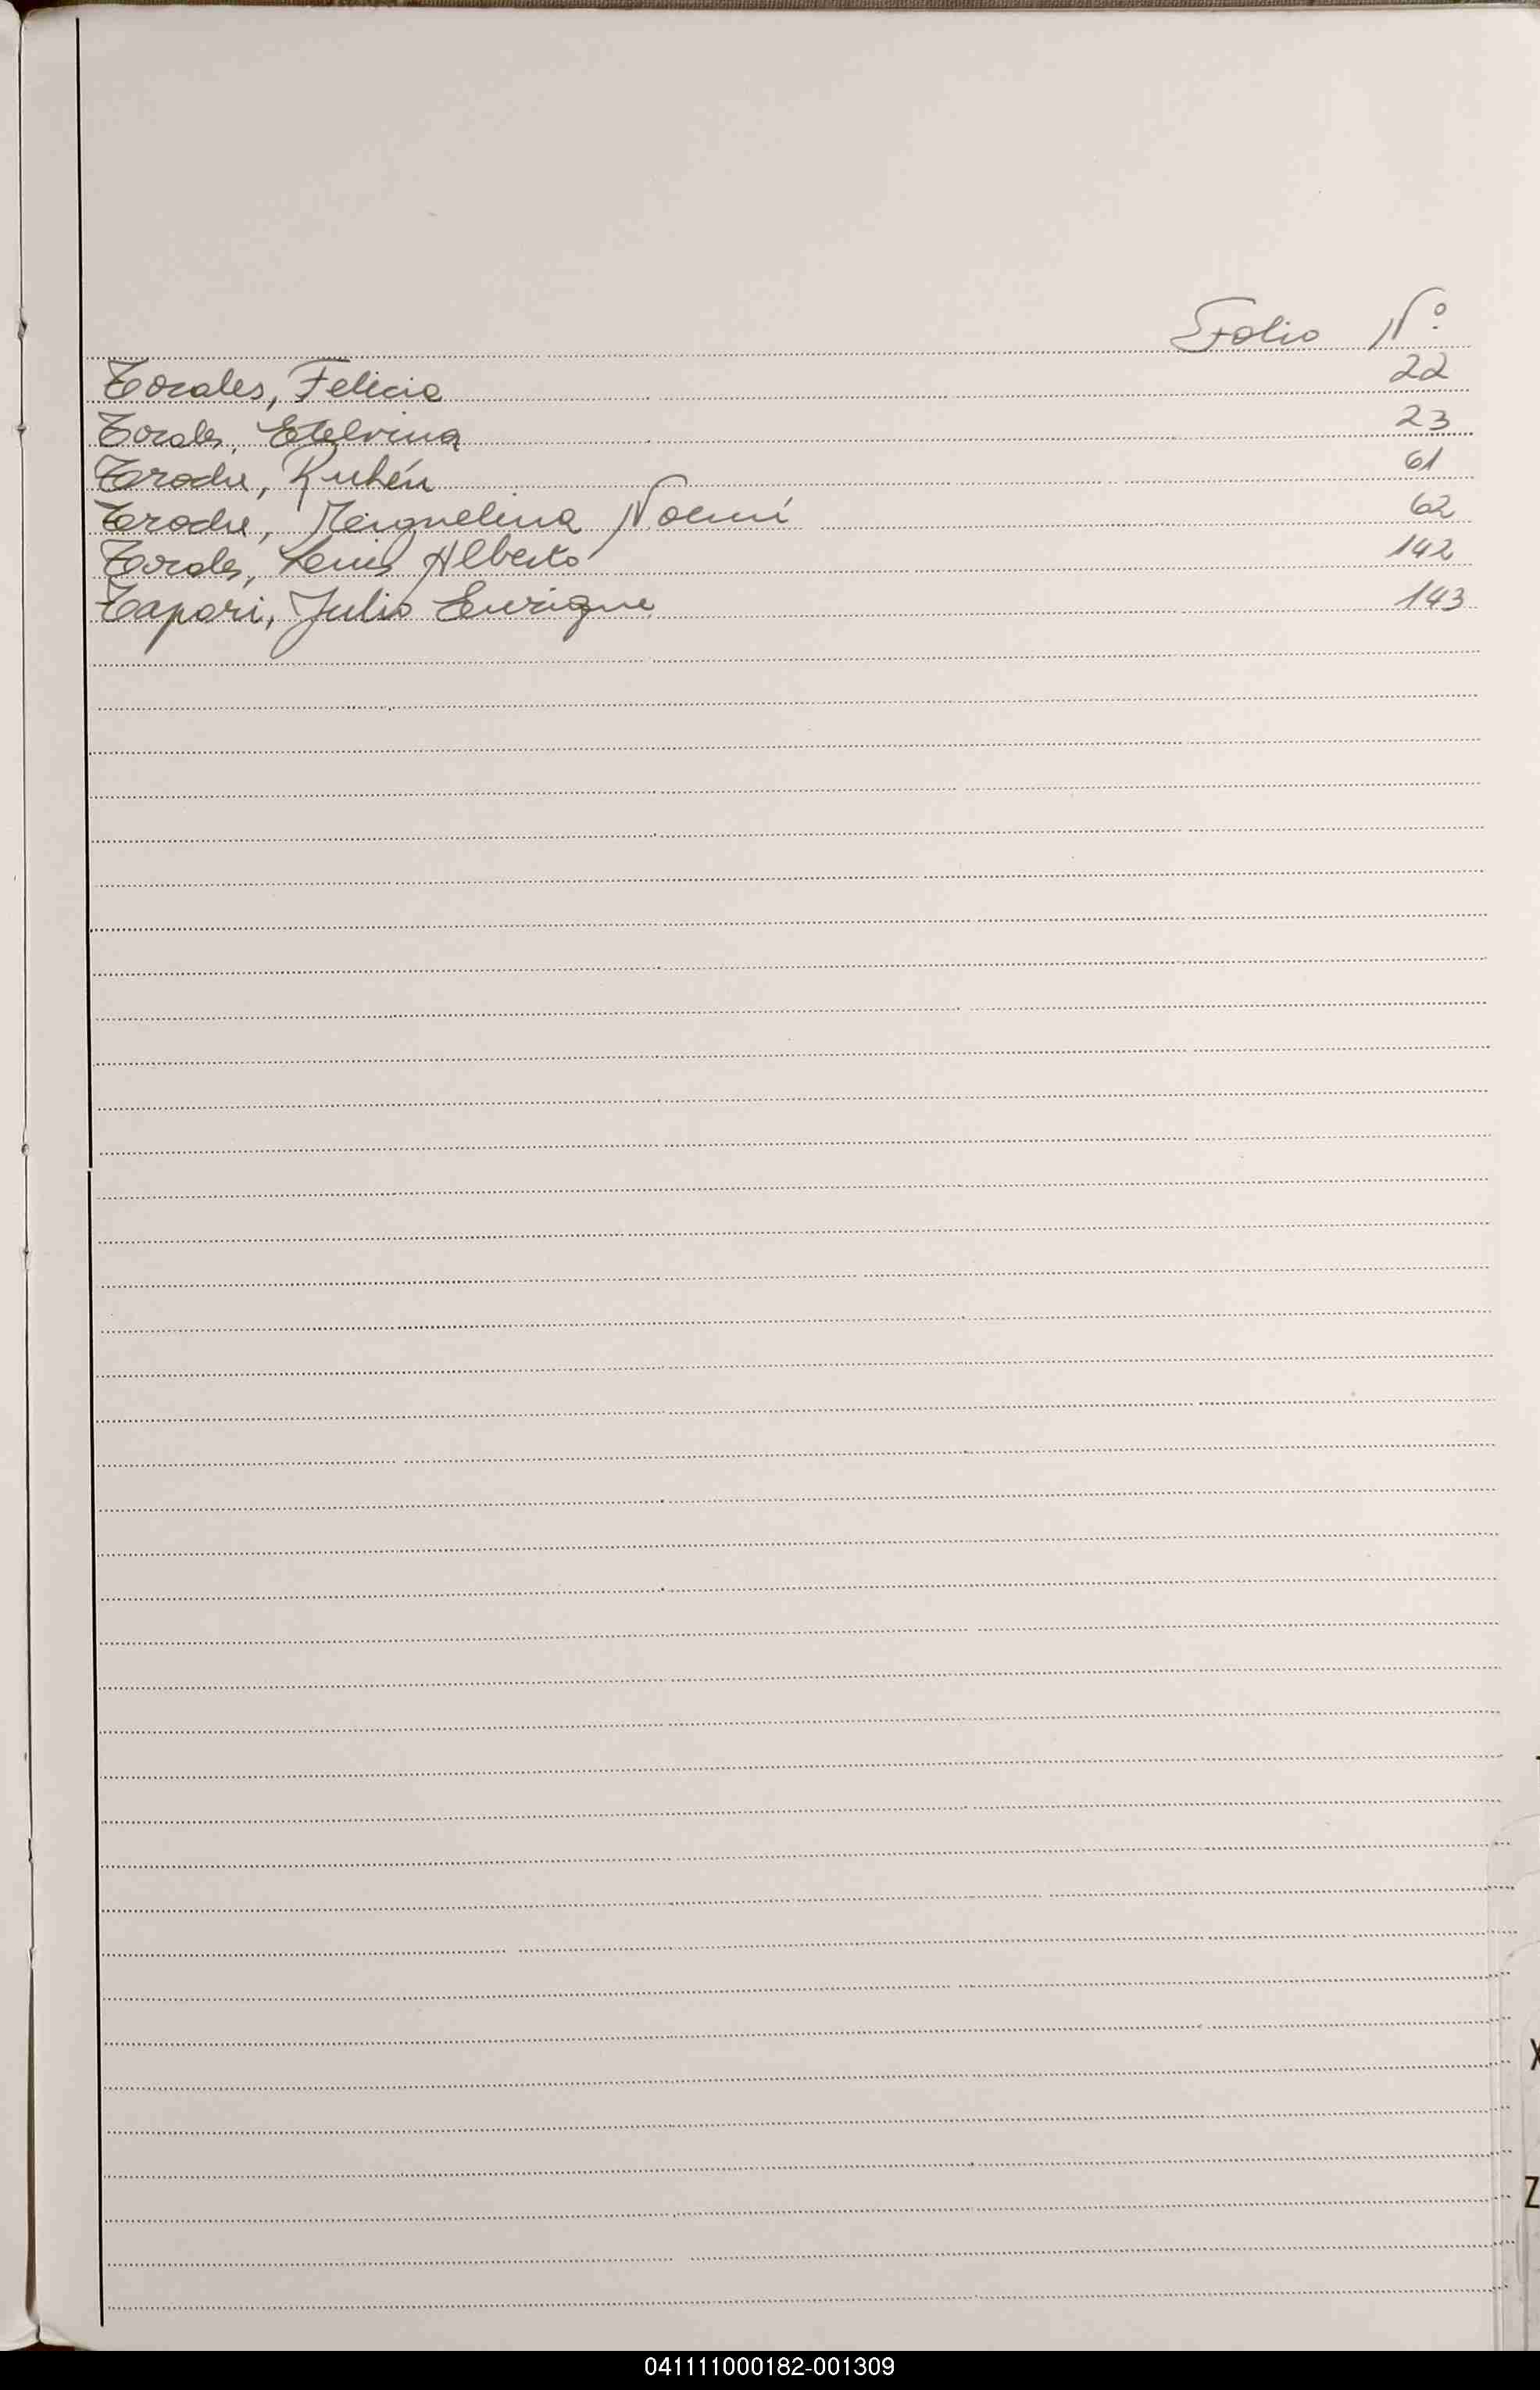 Folio Nº
Torales, Felicia 22
Torales, Etelvina 23
Troche, Rubén 61
Troche, Miguelina Noemí 62
Torales, Luis Alberto 142
Tapari, Julio Enrique 143
X
Z
041111000182-001309